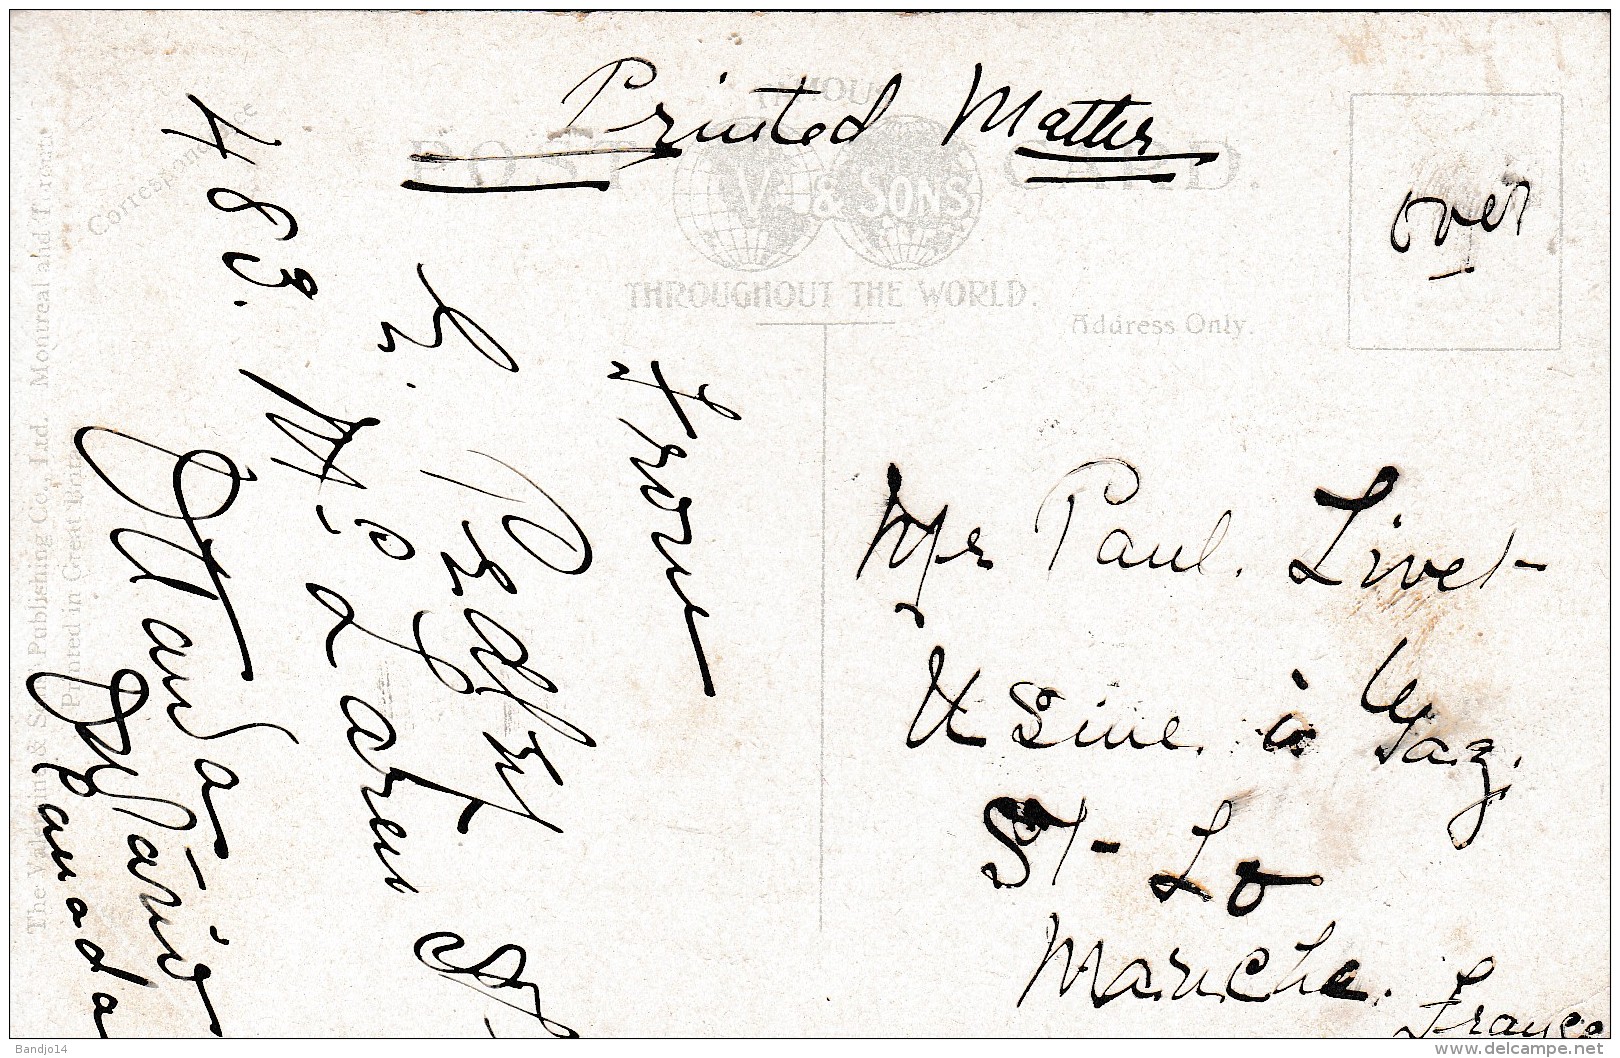 Printed Matter
FAMOUS
POST CARD.
V. & SONS
THROUGHOUT THE WORLD.
Correspondence
Address Only.
over
from
483. McLaren St
Ottawa
Ontario
Canada
Mr Paul. Livet
Usine à Gaz.
St-Lo
Manche.
France
Publishing Co., Ltd. Montreal and
Printed in Great Brit
Bandjo14
www.delcampe.net